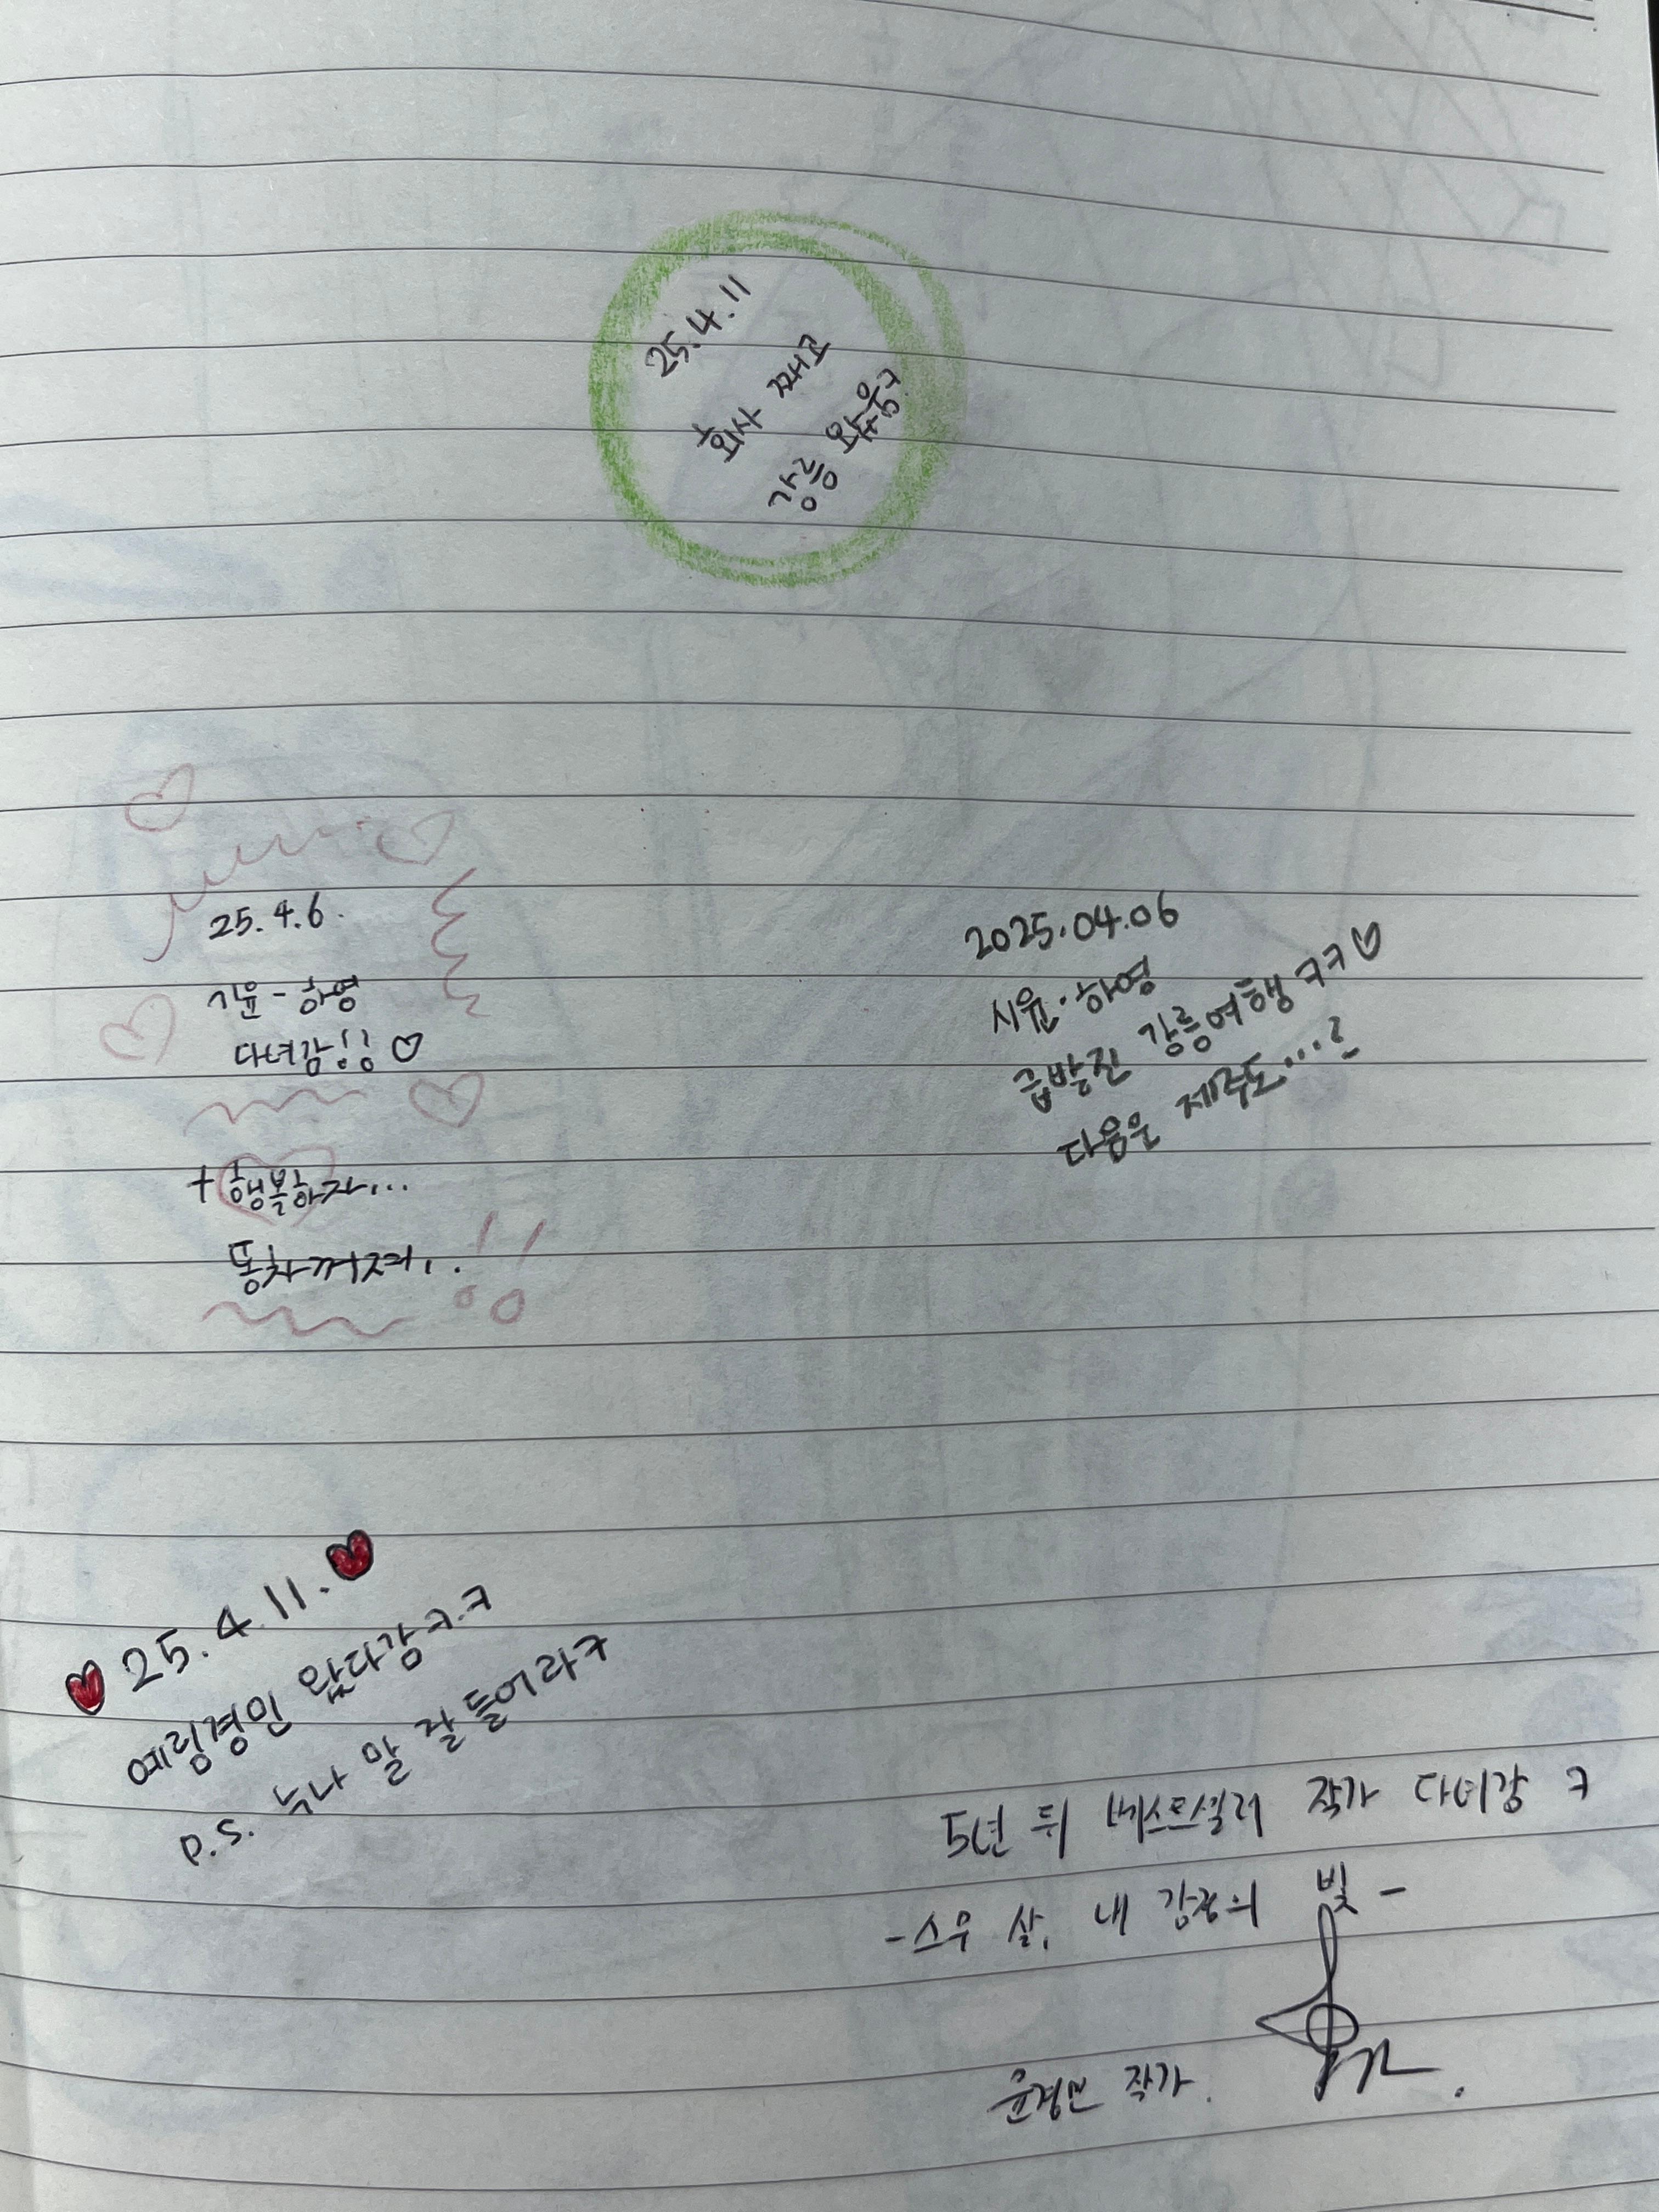 25.4.11
회사 째고
강릉 왔음ㅋ
25.4.6.
기윤-하영
다녀감!! ♡
+행복하자...
똥차꺼져..!!
2025.04.06
시윤·하영
급발진 강릉여행 ㅋㅋ♡
다음은 제주도...?
♥25.4.11.♥
예림경민 왔다감ㅋ.ㅋ
P.S. 누나 말 잘 들어라ㅋ
5년 뒤 베스트셀러 작가 다녀감 ㅋ
-스무 살, 내 감정의 빛-
윤경민 작가.